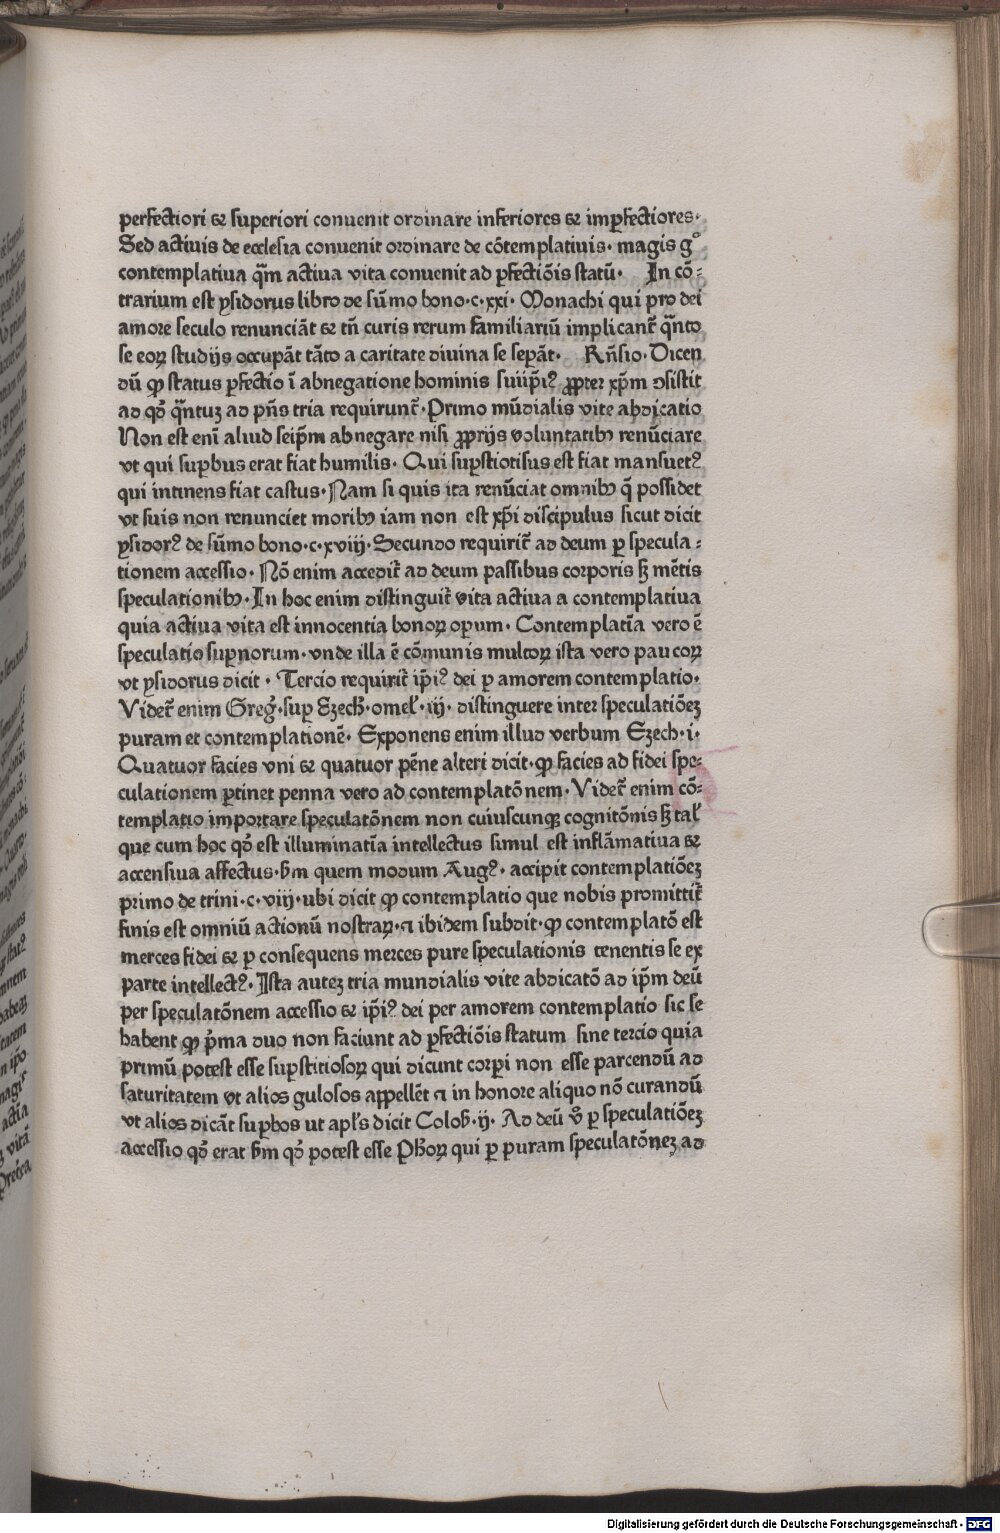 perfectiori ⁊ superiori conuenit ordinare inferiores ⁊ imꝑfectiores·
Sed actiuis de ecclesia conuenit ordinare de cōtemplatiuis· magis gͦ
contemplatiua q̄m actiua vita conuenit ad ꝑfectiōis statū· In cō-
trarium est ysidorus libro de sūmo bono·c·xxi· Monachi qui pro dei
amore seculo renunciāt ⁊ tn̄ curis rerum familiariū implicant᷑ q̄nto
se eoꝝ studijs occupāt tāto a caritate diuina se sepāt· Rn̄sio·Dicen
dū ꝙ status ꝑfectio ī abnegatione hominis suiip̄iꝰ ꝓpter xp̄m ↄsistit
ad qd̓ q̄ntuꝫ ad pn̄s tria requirunt᷑·Primo mūdialis vite abdicatio
Non est enī aliud seip̄m abnegare nisi ꝓprijs voluntatibꝫ renūciare
vt qui suꝑbus erat fiat humilis· Qui suꝑstiotisus est fiat mansuetꝰ
qui intinens fiat castus·Nam si quis ita renūciat omnibꝫ q̄ possidet
vt suis non renunciet moribꝫ iam non est xp̄i discipulus sicut dicit
ysidorꝰ de sūmo bono·c·xviij·Secundo requirit᷑ ad deum ꝑ specula-
tionem accessio· Nō enim accedit᷑ ad deum passibus corporis sꝫ mētis
speculationibꝫ·In hoc enim distinguit᷑ vita actiua a contemplatiua
quia actiua vita est innocentia bonoꝝ oꝑum· Contemplatīa vero ē
speculatio suꝑnorum·vnde illa ē cōmunis multoꝝ ista vero paucoꝝ
vt ysidorus dicit · Tercio requirit᷑ ip̄iꝰ dei ꝑ amorem contemplatio·
Videt᷑ enim Greg̓·suꝑ Ezech̓·omel̓·iij· distinguere inter speculatiōeꝫ
puram et contemplationē· Exponens enim illud verbum Ezech·i·
Quatuor facies vni ⁊ quatuor pēne alteri dicit·ꝙ facies ad fidei spe-
culationem ꝑtinet penna vero ad contemplatōnem·Videt᷑ enim cō-
templatio importare speculatōnem non cuiuscunqꝫ cognitōnis sꝫ tal̓
que cum hoc qd̓ est illuminatīa intellectus simul est inflāmatiua ⁊
accensiua affectus·ẜm quem modum Augꝰ· accipit contemplatiōeꝫ
primo de trini·c·viij·ubi dicit ꝙ contemplatio que nobis promittit᷑
finis est omniū actionū nostraꝝ·⁊ ibidem subdit·ꝙ contemplatō est
merces fidei ⁊ ꝑ consequens merces pure speculationis tenentis se ex
parte intellectꝰ·Ista auteꝫ tria mundialis vite abdicatō ad ip̄m deū
per speculatōnem accessio ⁊ ip̄iꝰ dei per amorem contemplatio sic se
habent ꝙ p̄ma duo non faciunt ad ꝑfectiōis statum sine tercio quia
primū potest esse suꝑstitiosoꝝ qui dicunt corꝑi non esse parcendū ad
saturitatem vt alios gulosos appellēt ⁊ in honore aliquo nō curandū
vt alios dicāt suꝑbos ut apl̓s dicit Coloẜ·ij· Ad deū v̓o ꝑ speculatiōeꝫ
accessio qd̓ erat ẜm qd̓ potest esse Ph̓oꝝ qui ꝑ puram speculatōneꝫ ad
Digitalisierung gefördert durch die Deutsche Forschungsgemeinschaft - DFG